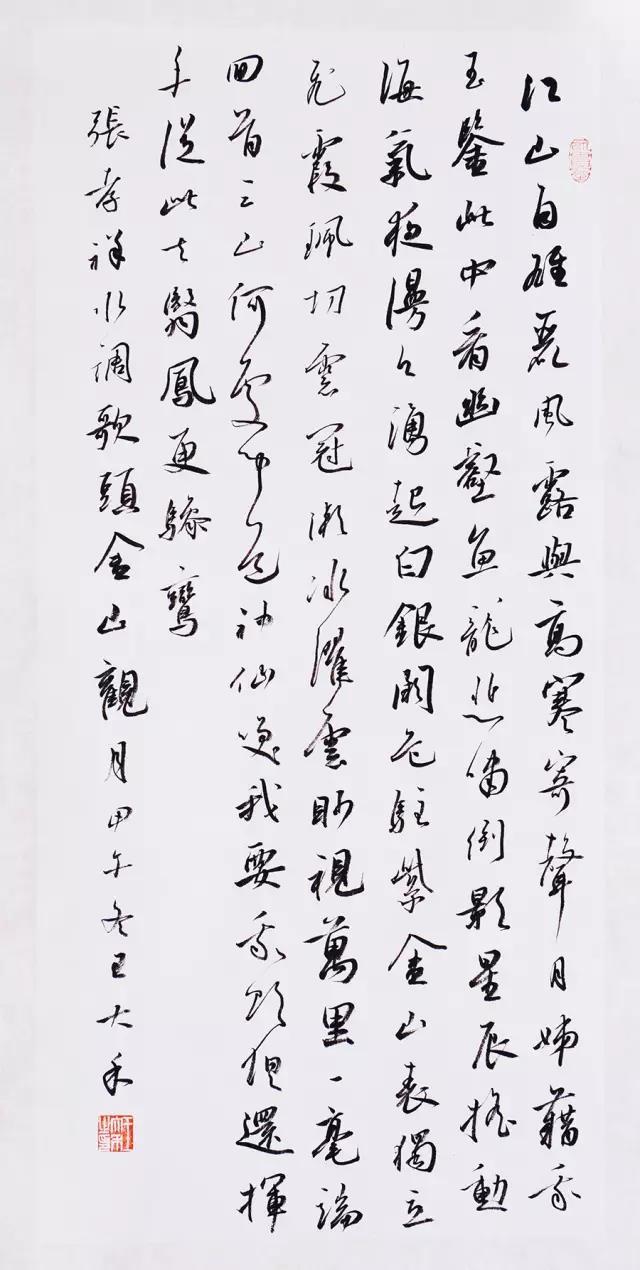 江山自雄麗風露與高寒寄聲月姊藉我
玉鑒此中看幽壑魚龍悲嘯倒影星辰搖動
海氣夜漫々湧起白銀闕危駐紫金山表獨立
飛霞珮切雲冠漱冰濯雪眇視萬里一毫端
回首三山何處聞道神仙笑我要我欲俱還揮
手從此去翳鳳更驂鸞
張孝祥水調歌頭金山觀月甲午冬王大禾